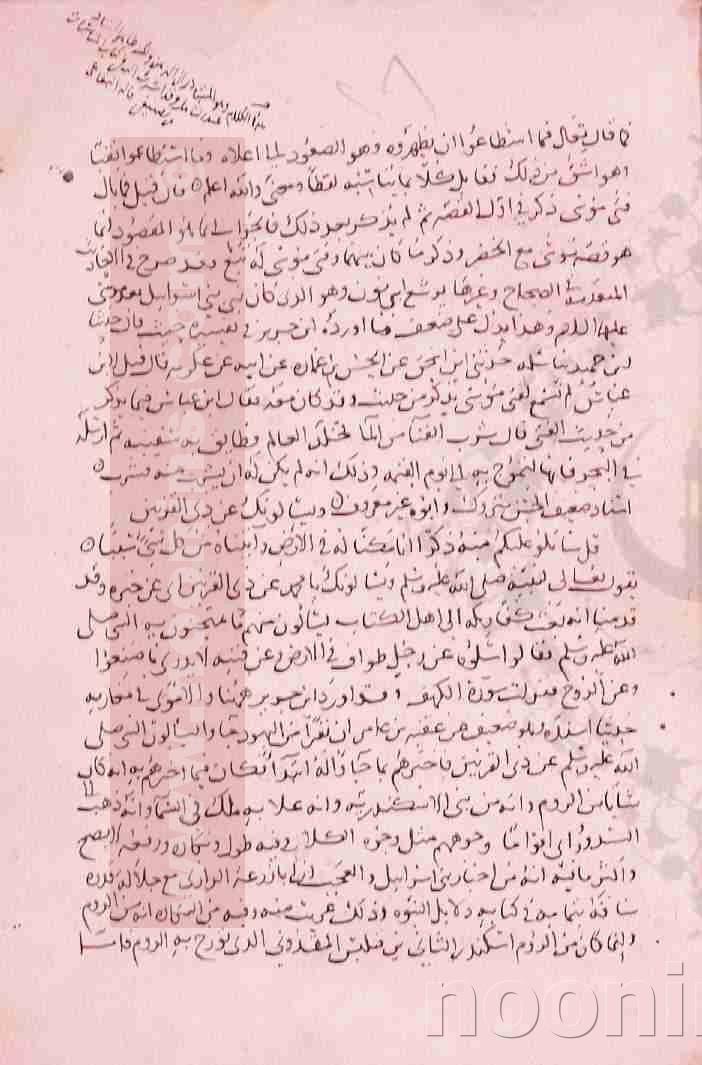 كما قال تعالى فما استطاعوا ان يظهروه وهو الصعود الى اعلاه وما استطاعوا له نقبا
وهو اشق من ذلك فقابل كلا بما يناسبه لفظا ومعنى والله اعلم فان قيل فما بال
فتى موسى ذكر في اول القصة ثم لم يذكر بعد ذلك فالجواب ان المقصود انما
هو قصة موسى مع الخضر وذكر ما كان بينهما وفتى موسى له تبع وقد صرح في الحديث
المتقدم في الصحاح وغيرها يوشع ابن نون وهو الذي كان يلي بني اسرائيل بعد موسى
عليهما السلام وهذا يدل على ضعف ما اورده ابن جرير في تفسيره حيث قال حدثنا
ابن حميد حدثنا سلمة حدثني ابن اسحق عن الحسن بن عمارة عن ابيه عن عكرمة قال قيل لابن
عباس لم نسمع لفتى موسى يذكر من حديث وقد كان معه فقال ابن عباس فيما يذكر
من حديث الفتى قال شرب الفتى من الماء فخلد فاخذه العالم فطابق به سفينة ثم ارسله
في البحر فانها لتموج به الى يوم القيمة وذلك انه لم يكن له ان يشرب منه فشرب
اسناد ضعيف الحسن متروك وابوه غير معروف ويسالونك عن ذي القرنين
قل ساتلو عليكم منه ذكرا انا مكنا له في الارض وآتيناه من كل شيء سببا
يقول تعالى لنبيه صلى الله عليه وسلم ويسالونك يا محمد عن ذي القرنين اي عن خبره وقد
قدمنا انه بعث كفار مكة الى اهل الكتاب يسالون منهم ما يمتحنون به النبي صلى
الله عليه وسلم فقالوا سلوه عن رجل طواف في الارض وعن فتية لا يدرى ما صنعوا
وعن الروح فنزلت سورة الكهف وقد اورد ابن جرير ههنا والاموي في مغازيه
حديثا اسنده وهو ضعيف عن عقبة بن عامر ان نفرا من اليهود جاوا يسالون النبي صلى
الله عليه وسلم عن ذي القرنين فاخبرهم بما جاوا له ابتداء فكان فيما اخبرهم به انه كان
شابا من الروم وانه من بنى الاسكندرية وانه علا به ملك في السماء وانه ذهب به الى
السد وراى اقواما وجوههم مثل وجوه الكلاب وفيه طول ونكارة ورفعه لا يصح
واكثر ما فيه انه من اخبار بني اسرائيل والعجب ان ابا زرعة الرازي مع جلالة قدره
ساقه بتمامه في كتابه دلائل النبوة وذلك غريب منه وفيه من النكارة انه من الروم
وانما كان من الروم اسكندر الثاني بن فيلبس المقدوني الذي تؤرخ به الروم فاما
noonin